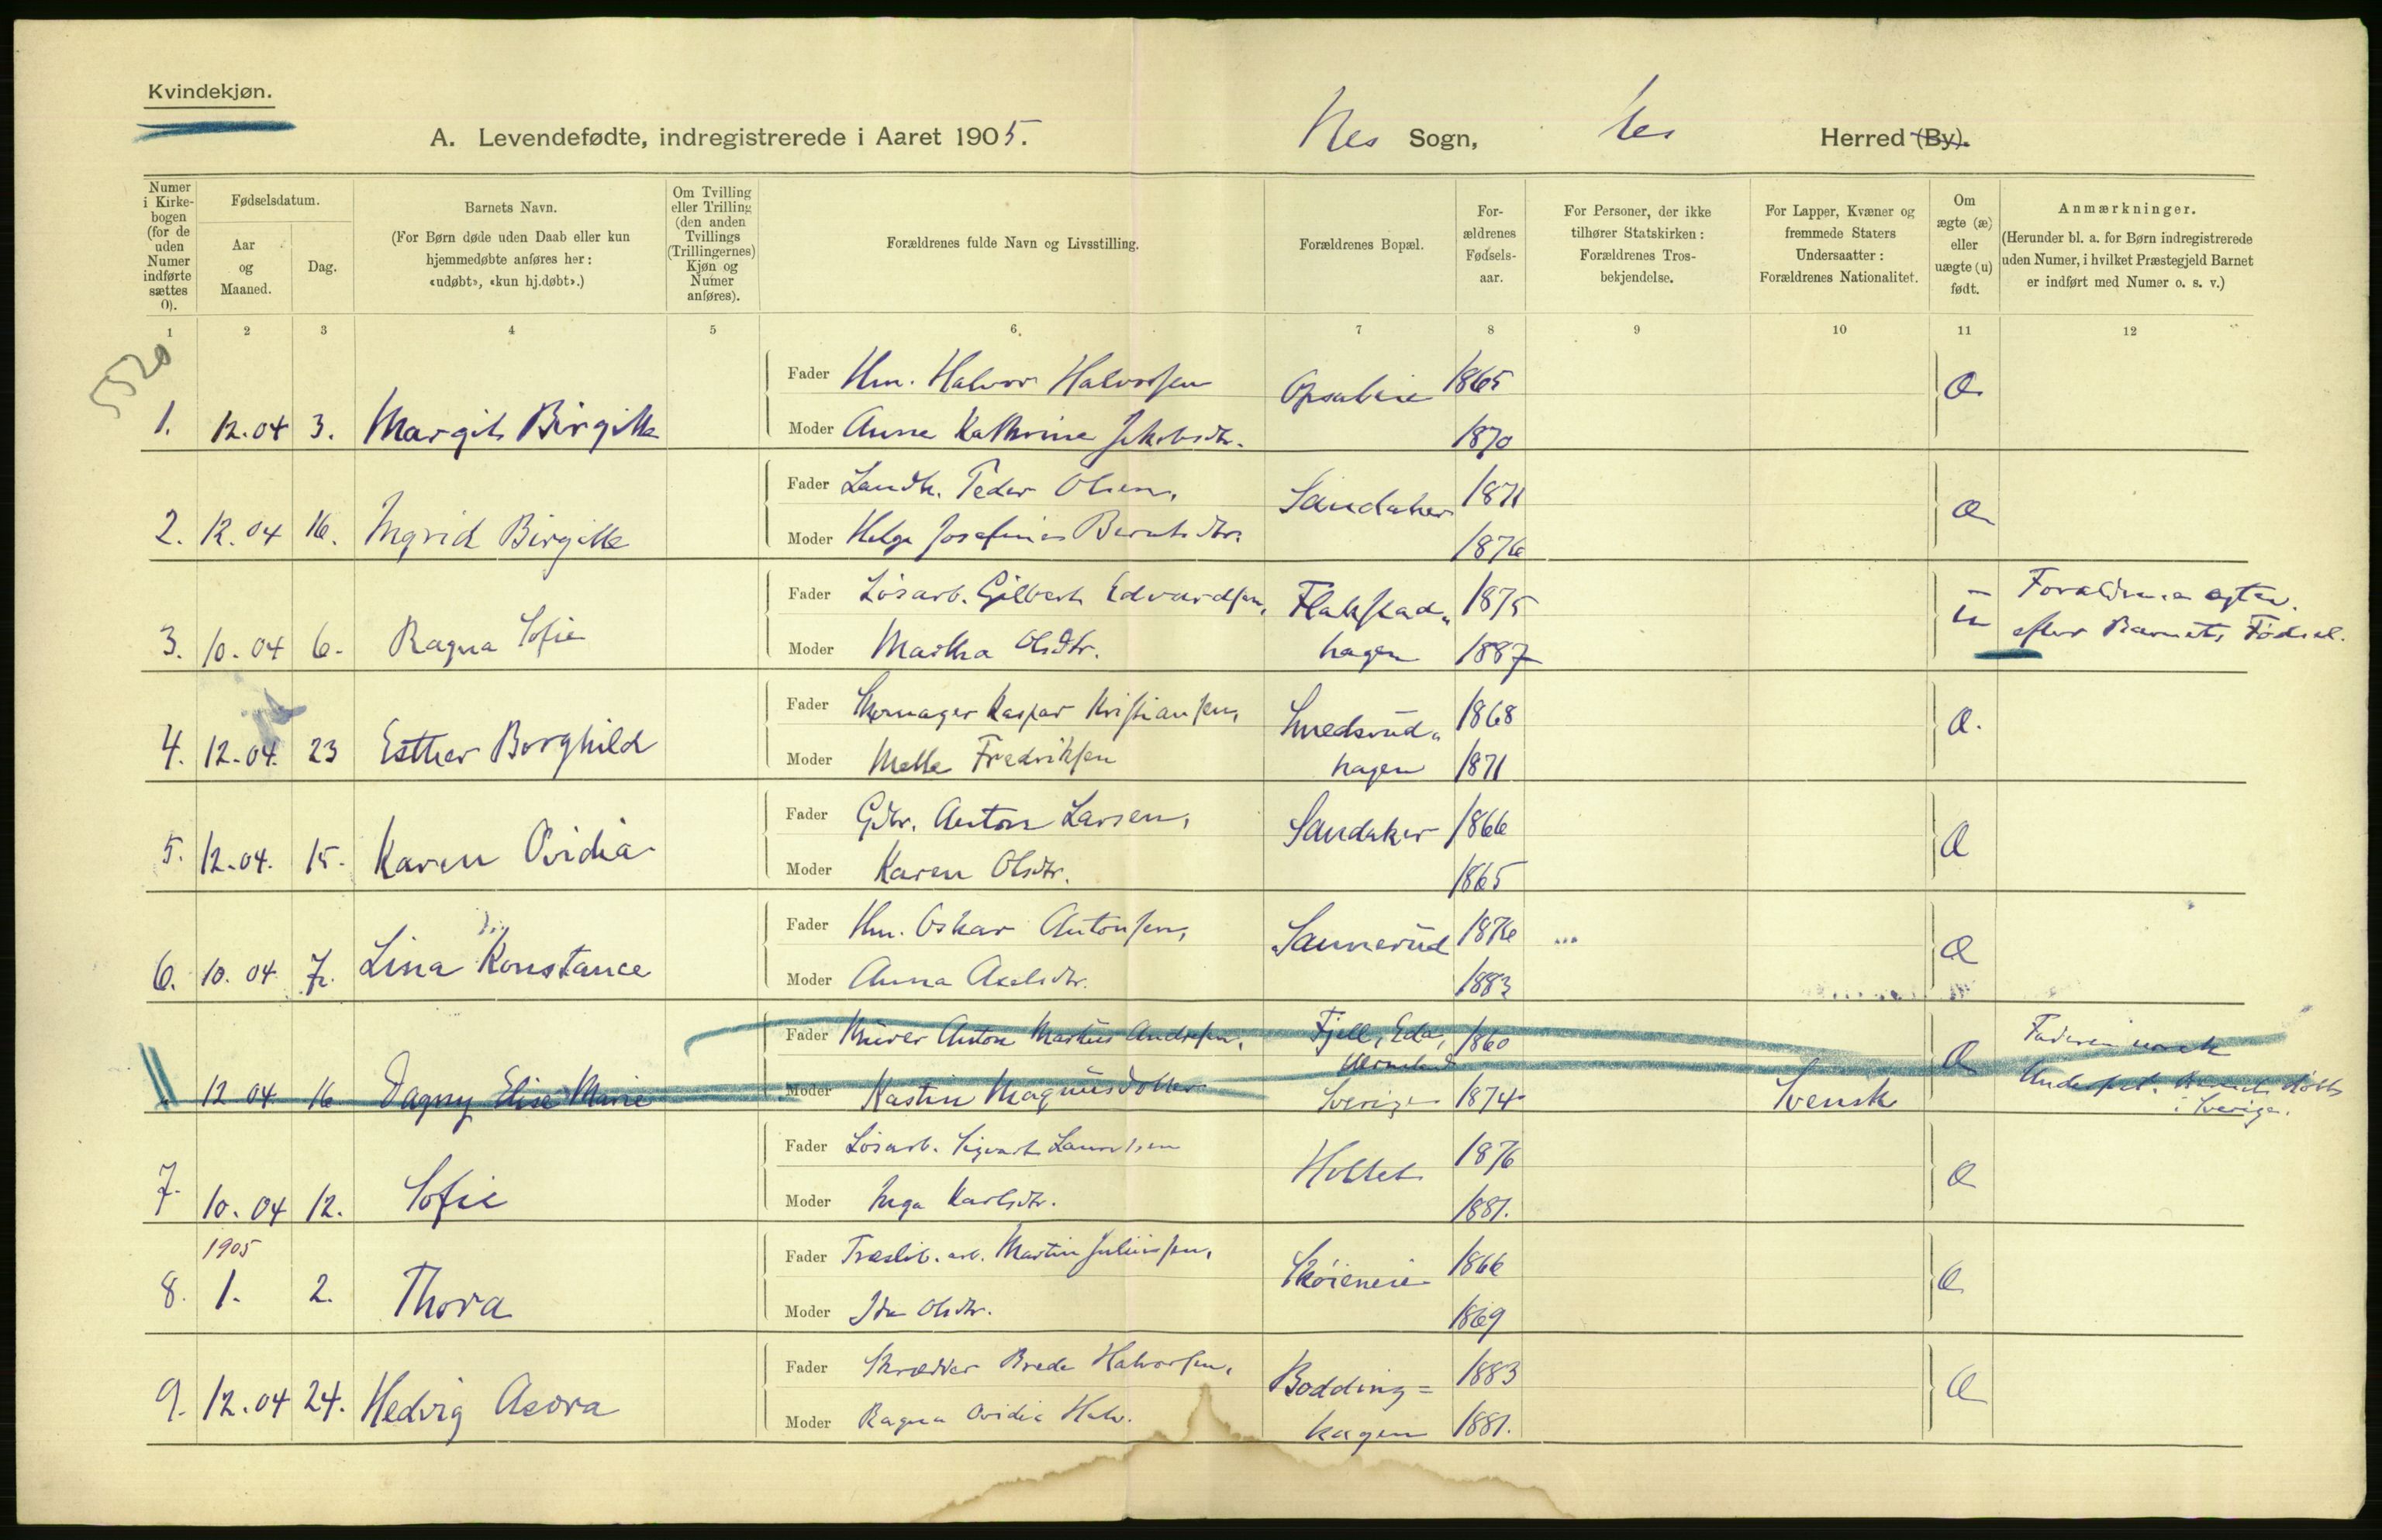 Kvindekjøn.
A. Levendefødte, indregistrerede i Aaret 1905.
Nes Sogn, Nes Herred (By).
Numer i Kirkebogen (for de uden Numer indførte sættes 0).
Fødselsdatum.
Aar og Maaned.
Dag.
Barnets Navn.
(For Børn døde uden Daab eller kun hjemmedøbte anføres her: «udøbt», «kun hj.døbt».)
Om Tvilling eller Trilling (den anden Tvillings (Trillingernes) Kjøn og Numer anføres).
Forældrenes fulde Navn og Livsstilling.
Forældrenes Bopæl.
Forældrenes Fødselsaar.
For Personer, der ikke tilhører Statskirken: Forældrenes Trosbekjendelse.
For Lapper, Kvæner og fremmede Staters Undersaatter: Forældrenes Nationalitet.
Om ægte (æ) eller uægte (u) født.
Anmærkninger.
(Herunder bl. a. for Børn indregistrerede uden Numer, i hvilket Præstegjeld Barnet er indført med Numer o. s. v.)
1 2 3 4 5 6. 7 8 9 10 11 12
5520
Fader Hm. Halvor Halvorsen Opsaleie 1865 Æ
1. 12.04 3. Margit Birgitte Moder Anne Kathrine Jakobsdtr. 1870
Fader Landh. Peder Olsen, Sandaker 1871 Æ
2. 12.04 16. Ingrid Birgitte Moder Helga Josefine Berntsdtr. 1876
Fader Løsarb. Gilbert Edvardsen, Flakstad 1875 U Forældrene egtev.
3. 10.04 6. Ragna Sofie Moder Martha Olsdtr. hagen 1887 efter Barnets Fødsel.
Fader Skomager Kaspar Kristiansen, Smedsrud 1868 Æ.
4. 12.04. 23 Esther Borghild Moder Mette Fredriksen hagen 1871
Fader Gdbr. Anton Larsen, Sandaker 1866 Æ
5. 12.04. 15. Karen Ovidia Moder Karen Olsdtr. 1865
Fader Hm. Oskar Antonsen, Sannerud 1876 Æ
6. 10.04 7. Lina Konstance Moder Anna Axelsdtr. 1883
Fader Murer Anton Marius Andresen, Fjell, Eda, 1860 Æ Faderen norsk
Vermeland
12 04 16 Dagny Elise Marie Moder Kastin Magnusdotter Sverige 1874 Svensk Undersaat. Barnet døbt
i Sverige.
Fader Løsarb. Sigvart Lauritsen Holtet 1876 Æ
7. 10.04 12. Sofie Moder Inga Karlsdtr. 1881.
1905
Fader Træslib. arb. Martin Juliussen, Skøieneie 1866 Æ
8. 1. 2. Thora Moder Ida Olsdtr. 1869
Fader Skrædder Brede Halvorsen, Bodding= 1883 Æ
9. 12.04 24. Hedvig Asora Moder Ragna Ovidia Halv. hagen 1881.